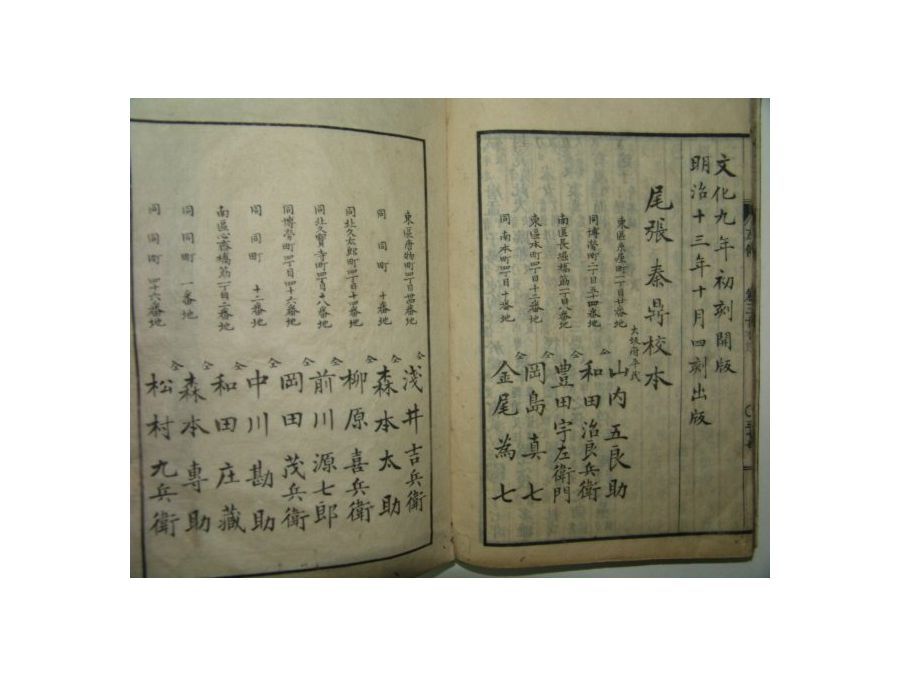 文化九年初刻開版
明治十三年十月四刻出版
尾張 秦鼎校本
大坂府平民
東區東屋町一丁目廿番地 山内五良助
同博勞町二丁目五十四番地 仝 和田治良兵衛
南區長堀橋筋一丁目八番地 仝 豊田宇左衛門
東區本町四丁目十二番地 仝 岡島真七
同南本町四丁目十番地 仝 金尾為七
東區唐物町四丁目番地 仝 浅井吉兵衛
同 同町 十番地 仝 森本太助
同北久太郎町四丁目十四番地 仝 柳原喜兵衛
同北久寳寺町四丁目十八番地 仝 前川源七郎
同博勞町四丁目四十六番地 仝 岡田茂兵衛
同 同町 十二番地 仝 中川勘助
南區心斎橋筋一丁目番地 仝 和田庄藏
同 同町 一番地 仝 森本專助
同 同町 四十六番地 仝 松村九兵衛